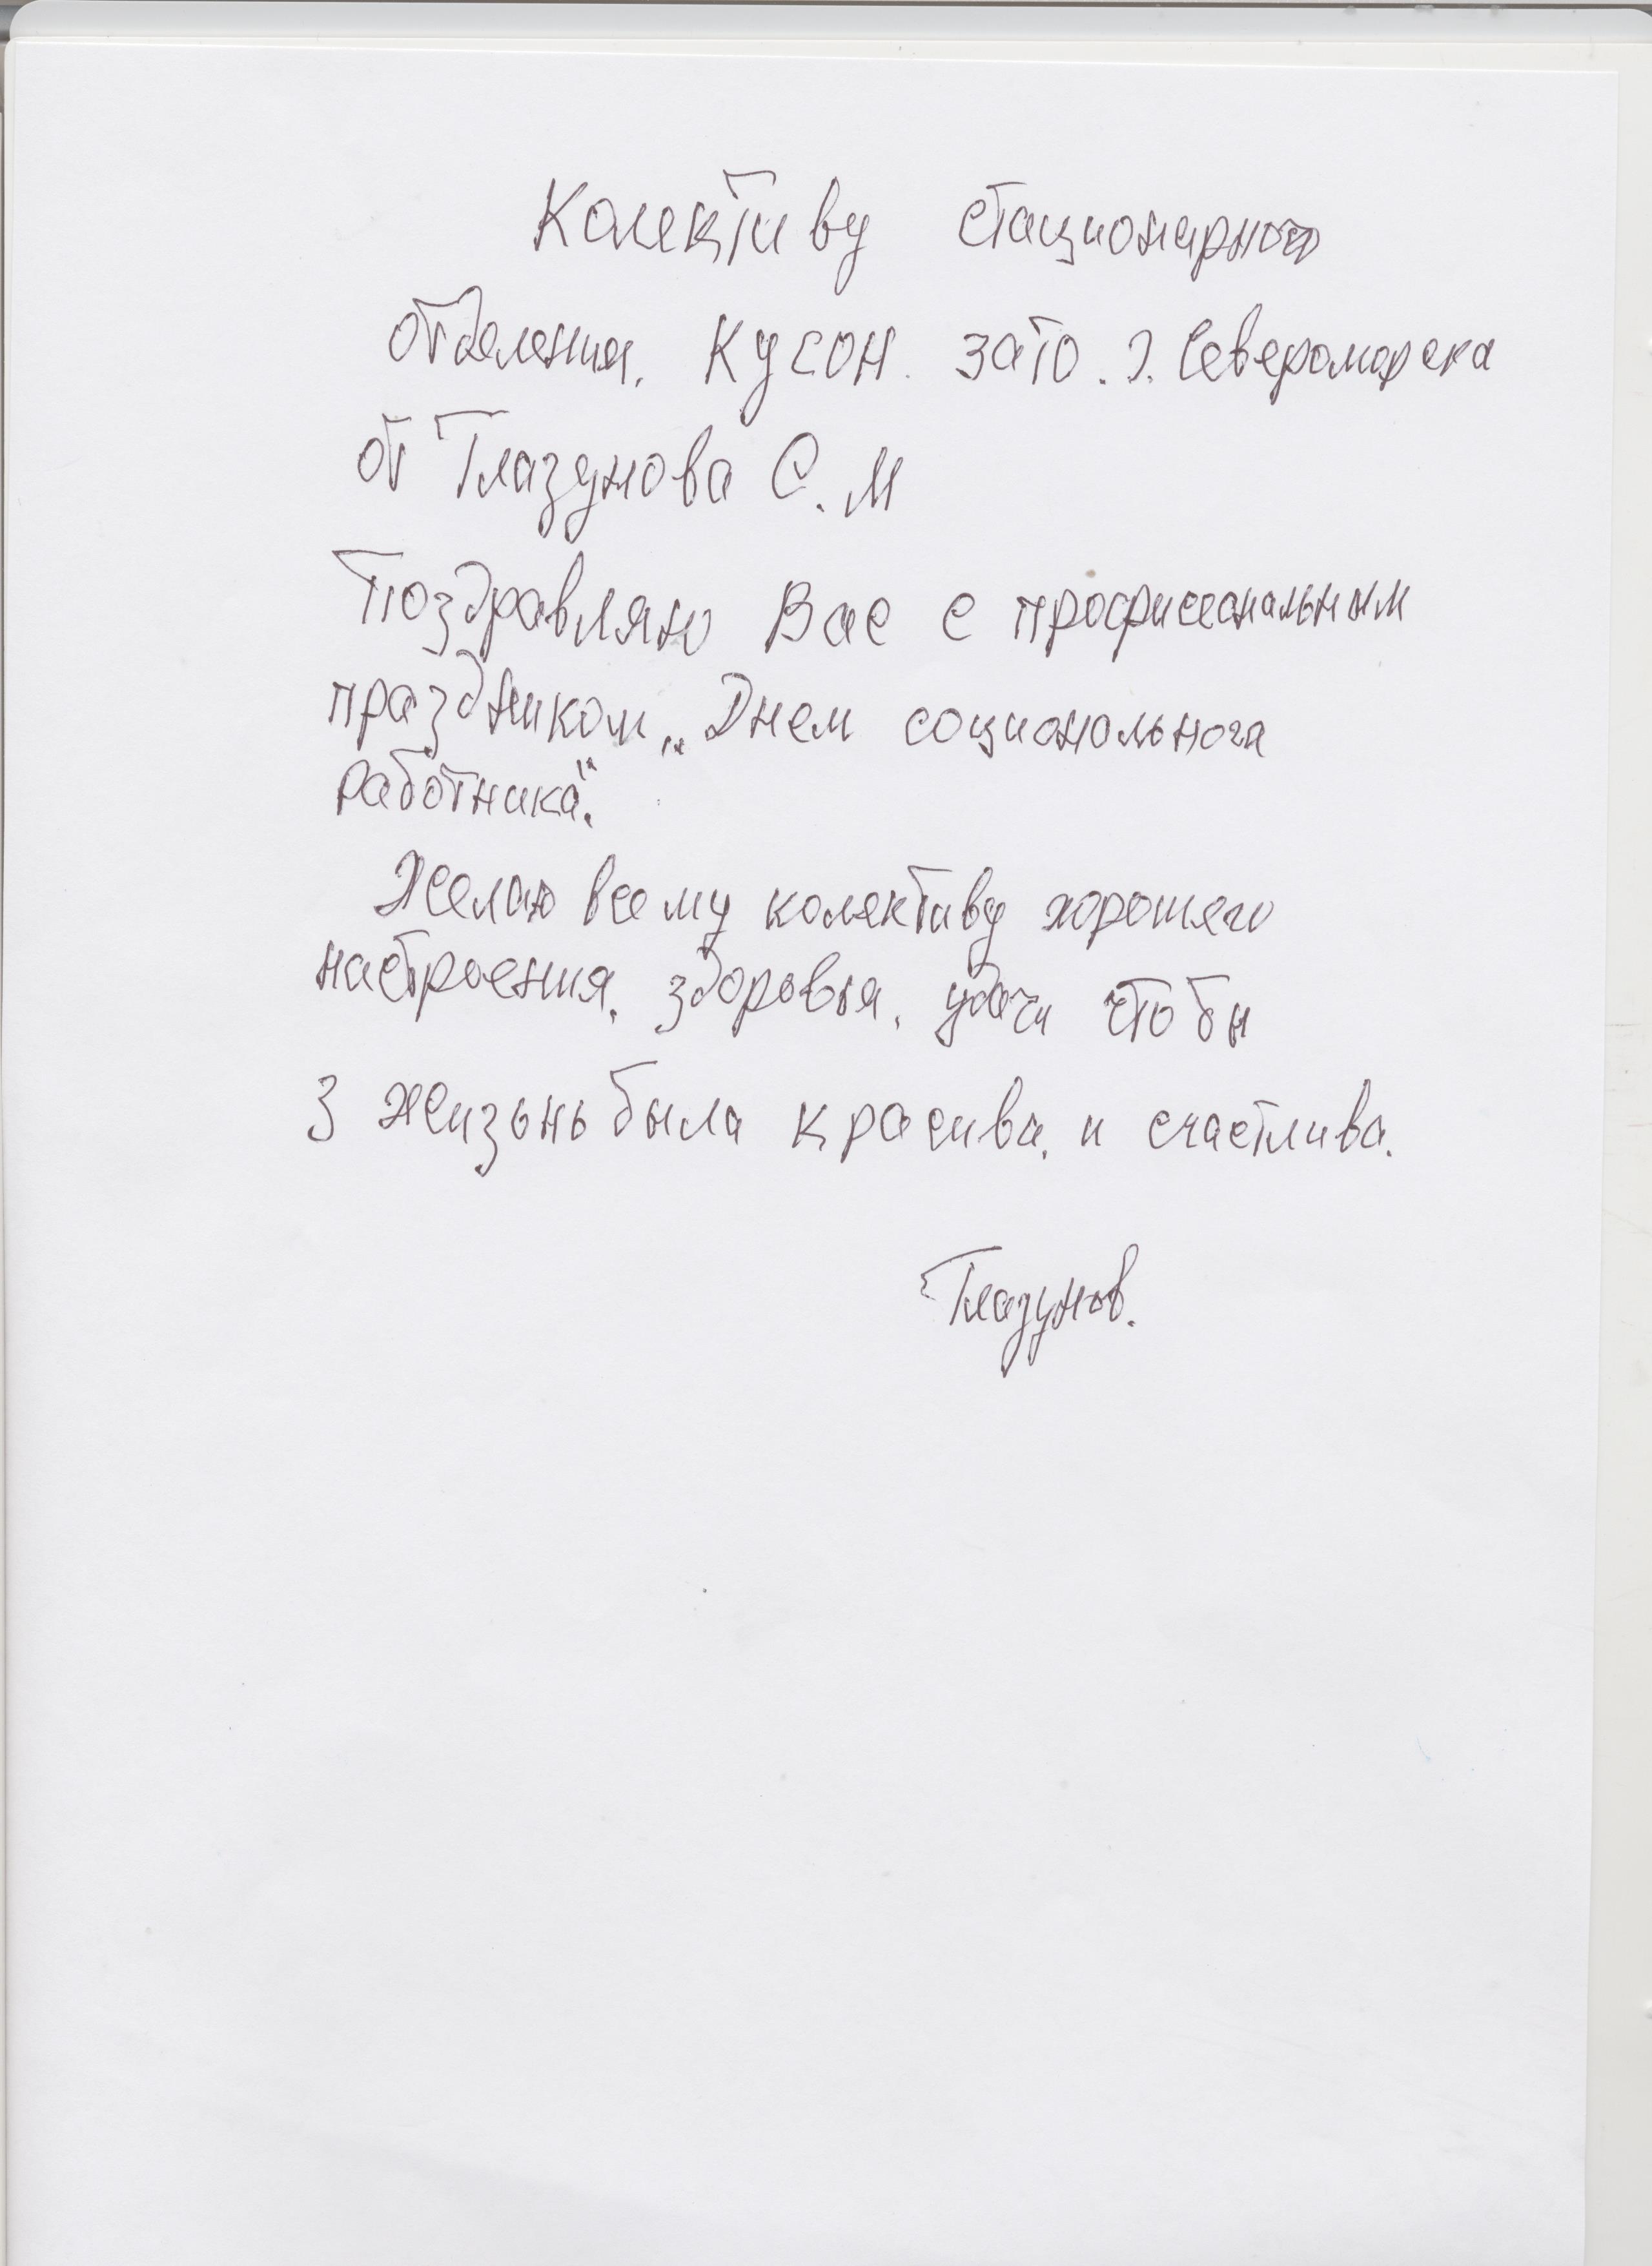 Колективу стационарного
отделения. КУСОН. ЗАТО. г. Североморска
от Глазунова С. М
Поздравляю Вас с профиссональным
праздником „Днем социональнога
работника".
Желаю всему колективу хорошего
настроения, здоровья, удачи что бы
З жизьнь была красива, и счастлива.
Глазунов.